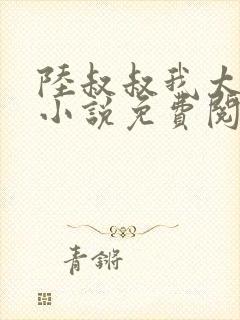 陸叔叔我大
小說免費閱
青鏘